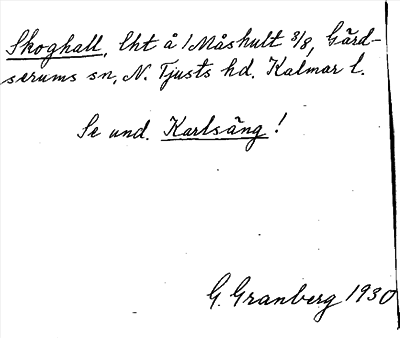 Skoghall, lht å 1 Måshult 3/8, Gärd-
serums sn, N. Tjusts hd. Kalmar l.
Se und. Karlsäng!
G. Granberg 1930